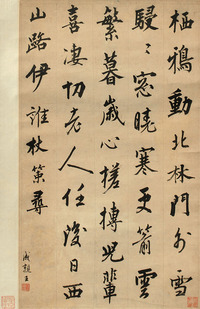 栖鴉動北林門外雪
駸〻窓曉寒更箭雲
繁暮歲心搓摶兒輩
喜凄切老人任後日西
山路伊誰杖策尋
成親王